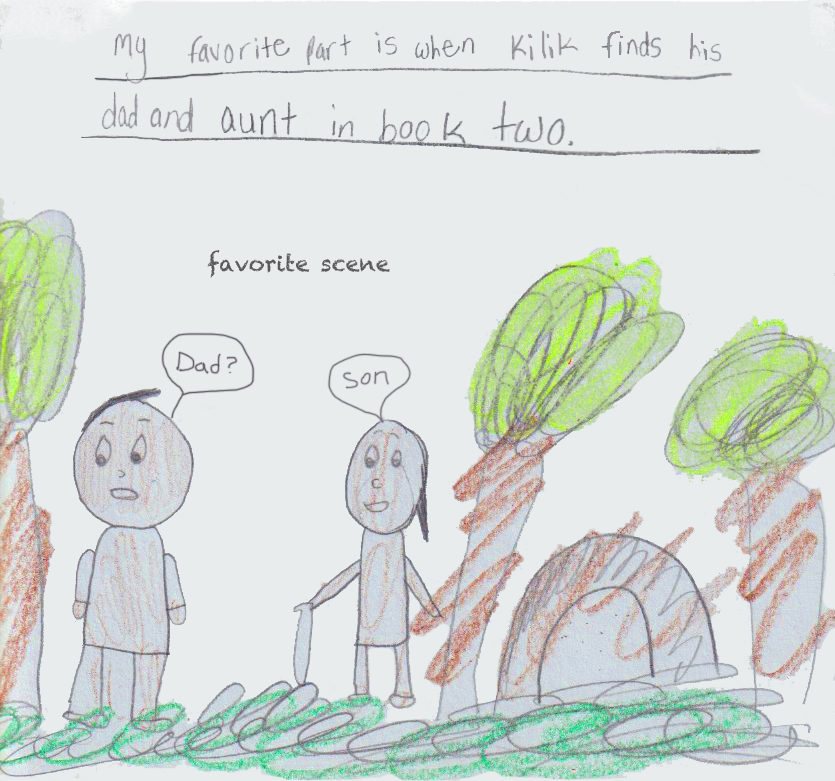 My favorite part is when Kilik finds his
dad and aunt in book two.
favorite scene
Dad?
son